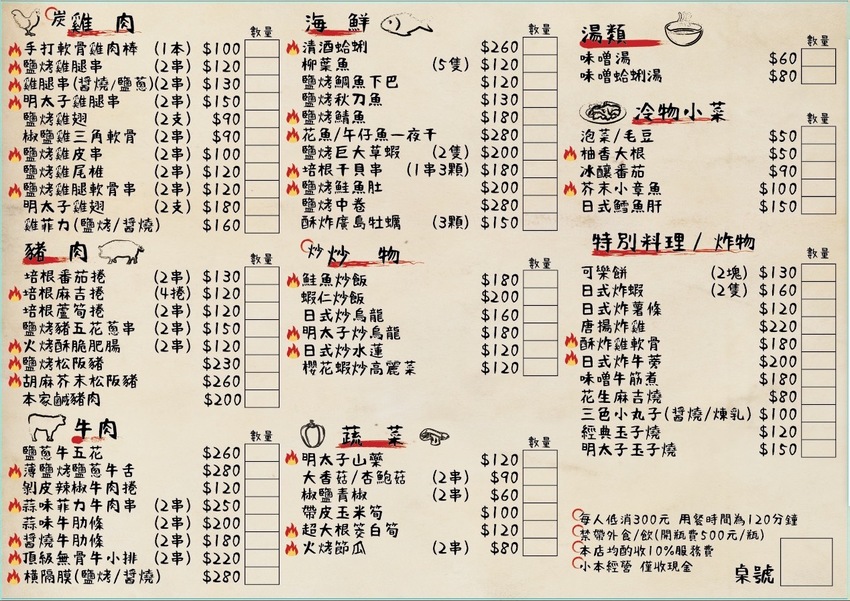 炭 雞肉 數量
手打軟骨雞肉棒 (1本) $100
鹽烤雞腿串 (2串) $120
雞腿串(醬燒/鹽蔥)(2串) $130
明太子雞腿串 (2串) $150
鹽烤雞翅 (2支) $90
椒鹽雞三角軟骨 (2串) $90
鹽烤雞皮串 (2串) $100
鹽烤雞尾椎 (2串) $120
鹽烤雞腿軟骨串 (2串) $120
明太子雞翅 (2支) $180
雞菲力(鹽烤/醬燒) $160
豬肉 數量
培根番茄捲 (2串) $130
培根麻吉捲 (4捲) $120
培根蘆筍捲 (2串) $120
鹽烤豬五花蔥串 (2串) $150
火烤酥脆肥腸 (2串) $120
鹽烤松阪豬 $230
胡麻芥末松阪豬 $260
本家鹹豬肉 $200
牛肉 數量
鹽蔥牛五花 $260
薄鹽烤鹽蔥牛舌 $280
剝皮辣椒牛肉捲 $120
蒜味菲力牛肉串 (2串) $250
蒜味牛肋條 (2串) $200
醬燒牛肋條 (2串) $180
頂級無骨牛小排 (2串) $220
橫隔膜(鹽烤/醬燒) $280
海鮮 數量
清酒蛤蜊 $260
柳葉魚 (5隻) $120
鹽烤鯛魚下巴 $120
鹽烤秋刀魚 $130
鹽烤鯖魚 $180
花魚/午仔魚一夜干 $280
鹽烤巨大草蝦 (2隻) $200
培根干貝串 (1串3顆) $180
鹽烤鮭魚肚 $200
鹽烤中卷 $280
酥炸廣島牡蠣 (3顆) $150
炒 炒物 數量
鮭魚炒飯 $180
蝦仁炒飯 $200
日式炒烏龍 $160
明太子炒烏龍 $180
日式炒水蓮 $120
櫻花蝦炒高麗菜 $120
蔬菜 數量
明太子山藥 $120
大香菇/杏鮑菇 (2串) $90
椒鹽青椒 (2串) $60
帶皮玉米筍 $100
超大根筊白筍 $120
火烤節瓜 (2串) $80
湯類 數量
味噌湯 $60
味噌蛤蜊湯 $80
冷物小菜 數量
泡菜/毛豆 $50
柚香大根 $50
冰釀番茄 $90
芥末小章魚 $100
日式鱈魚肝 $150
特別料理/炸物 數量
可樂餅 (2塊) $130
日式炸蝦 (2隻) $160
日式炸薯條 $120
唐揚炸雞 $220
酥炸雞軟骨 $180
日式炸牛蒡 $200
味噌牛筋煮 $180
花生麻吉燒 $80
三色小丸子(醬燒/煉乳) $100
經典玉子燒 $120
明太子玉子燒 $150
每人低消300元 用餐時間為120分鐘
禁帶外食/飲(開瓶費500元/瓶)
本店均酌收10%服務費
小本經營 僅收現金
桌號